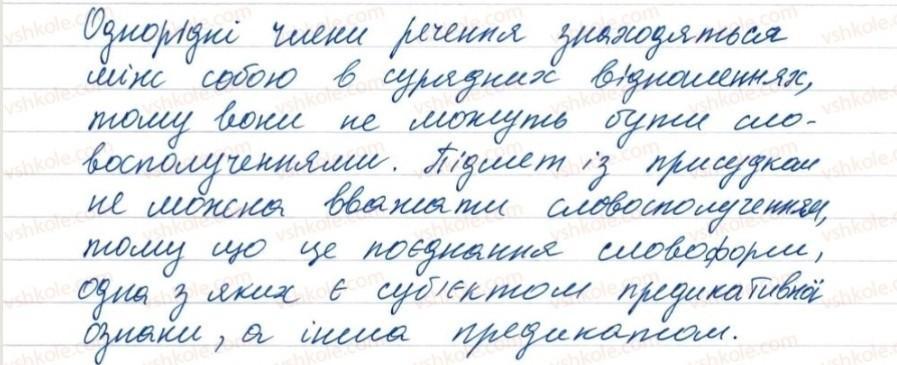 Однорідні члени речення знаходяться
між собою в сурядних відношеннях,
тому вони не можуть бути сло-
восполученнями. Підмет із присудком
не можна вважати словосполученням,
тому що це поєднання словоформ,
одна з яких є суб'єктом предикативної
ознаки, а інша предикатом.